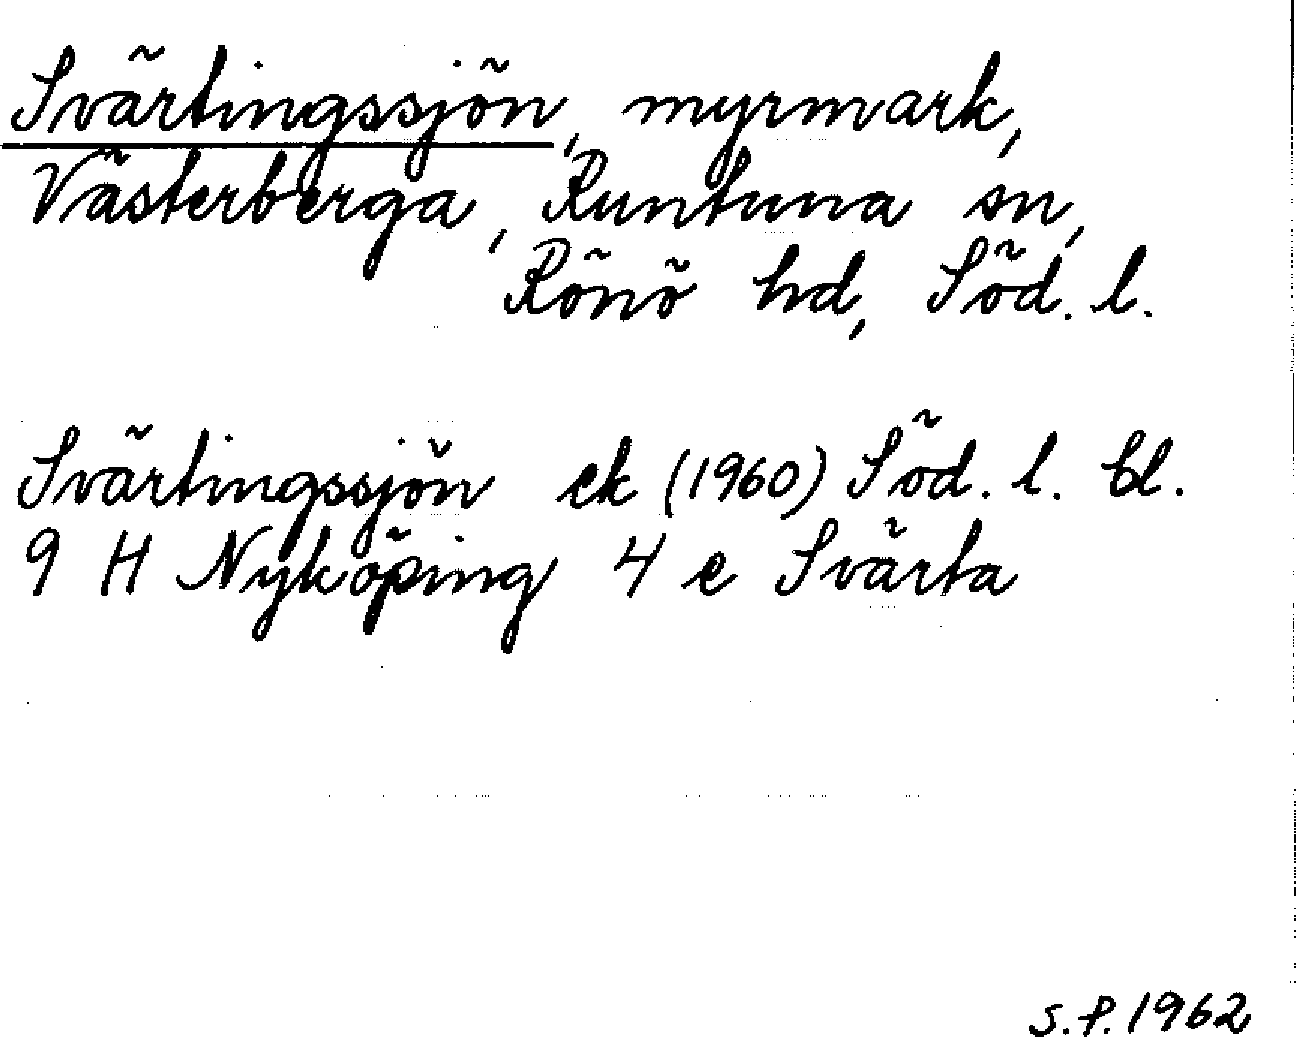 Svärtingssjön, myrmark,
Västerberga, Runtuna sn,
Rönö hd, Söd. l.
Svärtingssjön ek (1960) Söd. l. bl.
9 H Nyköping 4 e Svärta
S.P. 1962